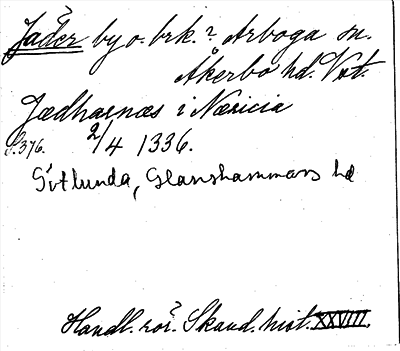 Jäder by o. brk.? Arboga sn.
Åkerbo hd. Vstm.
Jædharnæs i Næricia
S. 376. 2/4 1336.
Götlunda, Glanshammars hd
Handl. rör. Skand. hist. XXVIII.